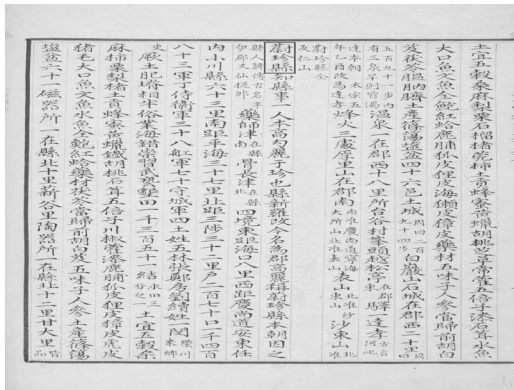 土宜五穀桑麻梨栗石榴楮莞柿土貢蜂蜜黃蠟胡桃芎藭常產五倍子漆石茸水魚
大口魚文魚全鮑紅蛤鹿脯狐皮狸皮海獺皮獐皮藥材五味子人參當歸前胡白
芨茯苓膃肭臍土產篠簜鹽盆四十六邑土城周回二百九十四步白巖山石城在郡西二十四里周回
五百九十一步內有三泉旱則渴溫泉一在郡西十八里所台谷村峯頭越松亭在郡東驛一達孝阿叱
達本朝太宗五年乙酉改爲達孝烽火三處厚里山在郡南南准慶尙道寧海大所山北准表山表山在郡東北准沙東山沙東山北准
蔚珍縣全反仁山
蔚珍縣知縣事一人本高句麗于珍也縣新羅改今名爲郡高麗稱蔚珍縣本朝因之
縣人諺傳古名半伊郡又仙槎郡藥師津在縣南骨長津在縣北四境東距海口八里西距慶尙道安東任
內小川縣六十三里南距平海三十七里北距三陟三十二里戶二百七十口一千四百
八十三軍丁侍衛軍三十八船軍七十守城軍四土姓五林張鄭房劉續姓一閔榮川來鄕
吏厥土肥塉相半俗業海錯崇習武藝墾田一千三百五十一結水田三分之一土宜五穀桑
麻柿栗梨楮土貢蜂蜜黃蠟鐵胡桃石茸五倍子川椒藿漆鹿脯狐皮狸皮獐皮虎皮
猪毛大口魚文魚水魚全鮑紅蛤藥材茯苓當歸前胡白芨五味子人參土產篠簜
鹽盆六十一磁器所一在縣北十里薪谷里陶器所一在縣北十二里甘大里皆品